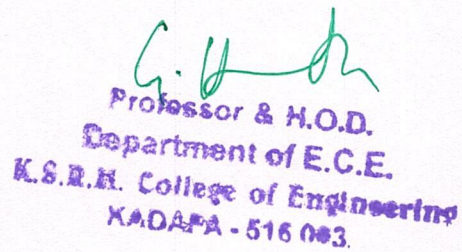 Professor & H.O.D.
Department of E.C.E.
K.S.R.M. College of Engineering
KADAPA - 516 003.